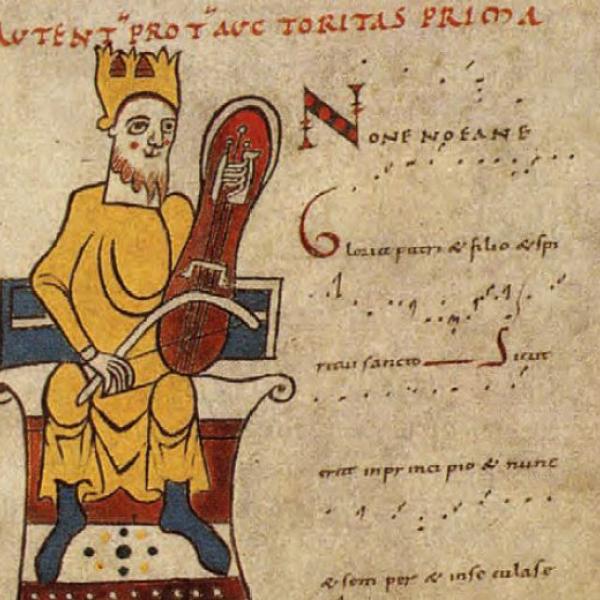 AUTENT PROT AUC TORITAS PRIMA
NONE NOEANE
Gloria patri & filio & spi
ritui sancto Sicut
erat inprincipio & nunc
& sem per & inse culase